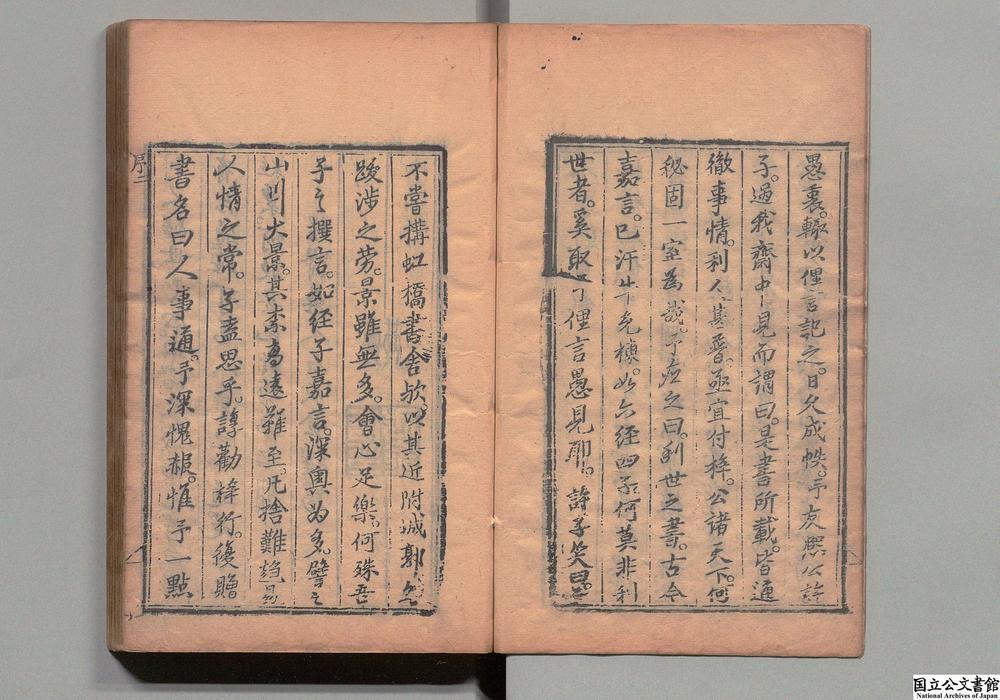 愚衷。輙以俚言記之。日久成帙。予友熈公許
子。過我齋中。見而謂曰。是書所載。皆通
徹事情。利人甚普。亟宜付梓。公諸天下。何
秘固一室為哉。予應之曰。利世之書。古今
嘉言。已汗牛充棟。如六經四子。何莫非利
世者。奚取了俚言愚見聊。許子笑曰。
不嘗搆虹橋書舍欤。以其近附城郭。
跋涉之勞。景雖無多。會心足樂。何殊吾
子之撰言。如經子嘉言。深奥為多。譬之
山川大景。其索高遠難至。凡捨難趋易
人情之常。子盍思乎。諄勸梓行。復贈
書名曰人事通。予深愧赧。惟予一點
序二
国立公文書館
National Archives of Japan